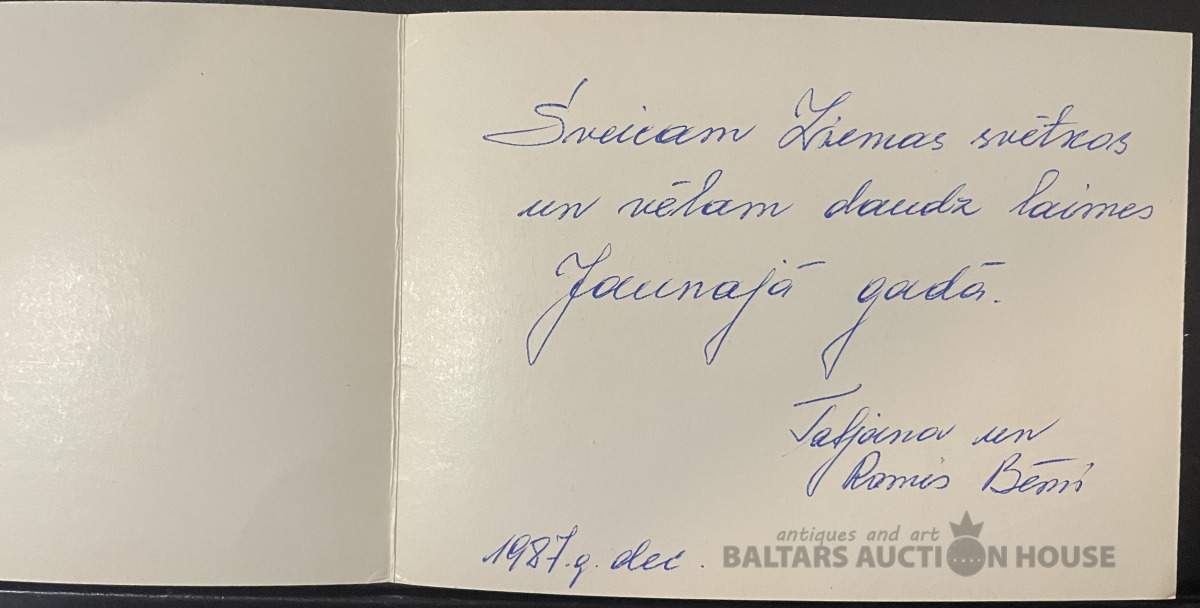 Sveicam Ziemas svētkos
un vēlam daudz laimes
Jaunajā gadā.
Tatjana un
Romis Bēmi
1987.g. dec.
antiques and art
BALTARS AUCTION HOUSE